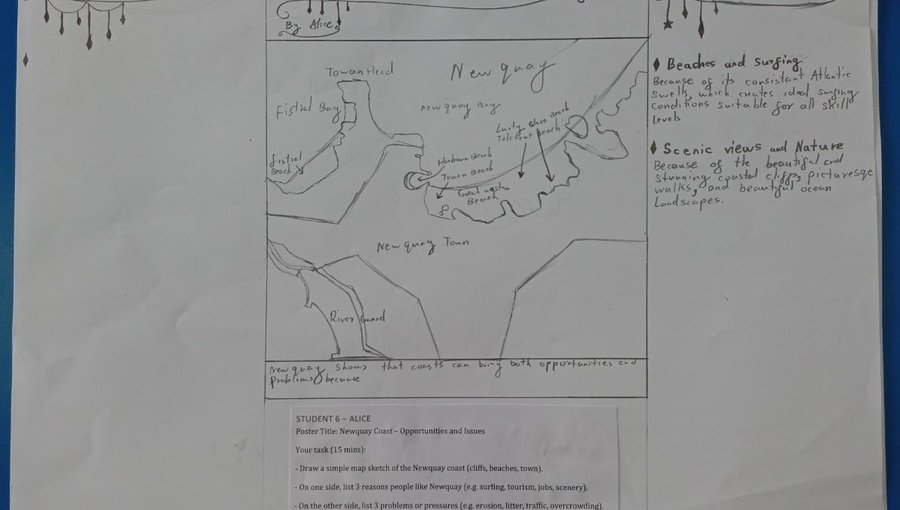 By Alice
Towan Head
Newquay
Fistral Bay
Newquay Bay
Fistral
Beach
Lusty Glaze Beach
Tolcarne Beach
Harbour Beach
Towan Beach
Great western
Beach
Newquay Town
River Gannel
Newquay shows that coasts can bring both opportunities and
problems because
♦ Beaches and surfing
Because of its consistant Atlantic
swells, which creates ideal surfing
conditions suitable for all skill
levels
♦ Scenic views and Nature
Because of the beautiful and
stunning coastal cliffs, picturesqe
walks, and beautiful ocean
landscapes.
STUDENT 6 – ALICE
Poster Title: Newquay Coast – Opportunities and Issues
Your task (15 mins):
- Draw a simple map sketch of the Newquay coast (cliffs, beaches, town).
- On one side, list 3 reasons people like Newquay (e.g. surfing, tourism, jobs, scenery).
- On the other side, list 3 problems or pressures (e.g. erosion, litter, traffic, overcrowding).